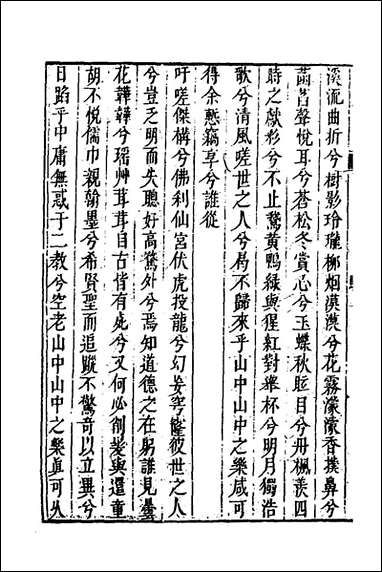 溪流曲折兮樹影玲瓏柳烟漠漠兮花霧濛濛香撲鼻兮
菌苔聲悅耳兮蒼松冬賞心兮玉蝶秋眩目兮丹楓羨四
時之獻彩兮不止鶩黃鴨綠與猩紅對舉杯兮明月獨浩
歌兮清風嗟世之人兮曷不歸來乎山中山中之樂咸可
得余慙竊享兮誰從
吁嗟傑構兮佛利仙宮伏虎投龍兮幻妄穹窿彼世之人
兮豈乏明而失聽好高騖外兮焉知道德之在躬誰見曇
花韡韡兮瑶艸茸茸自古皆有死兮又何必削髮與還童
胡不悅儒巾親翰墨兮希賢聖而追蹤不驚奇以立異兮
日蹈乎中庸無惑于二教兮空老山中山中之樂眞可從